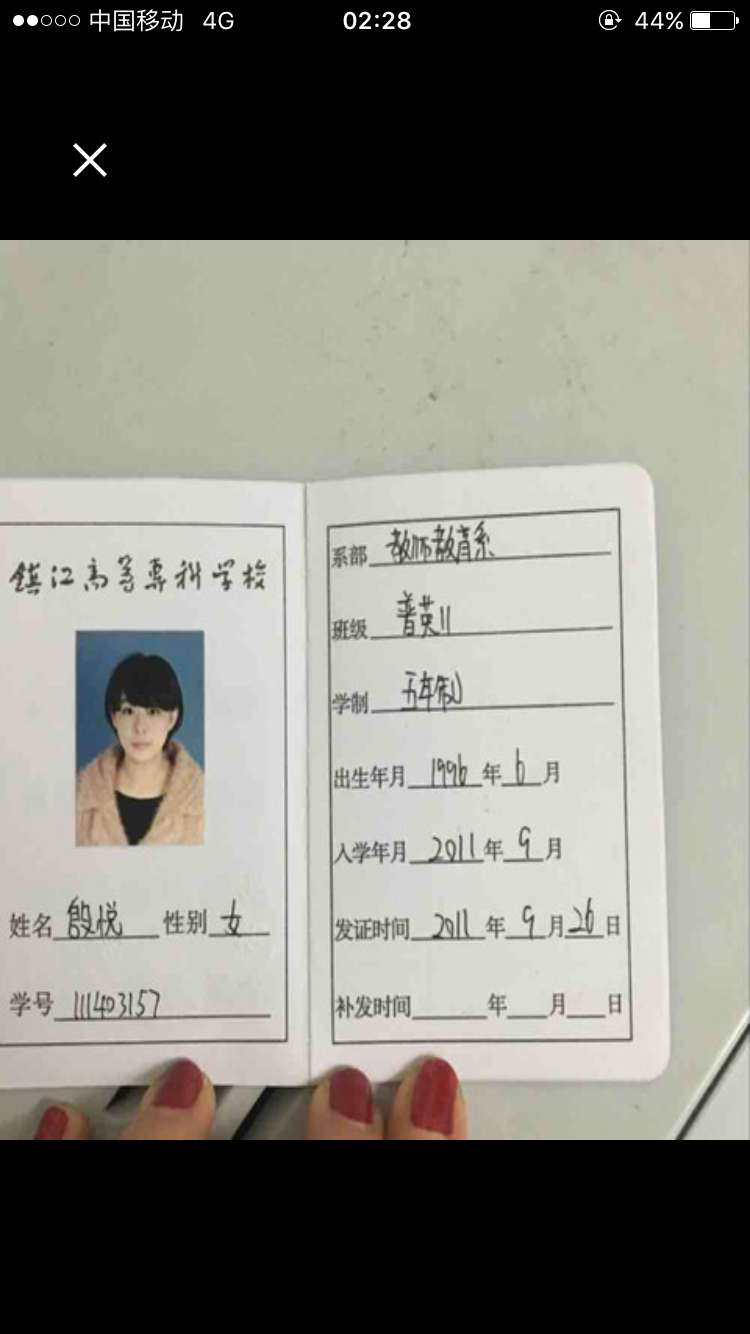 中国移动 4G 02:28 44%
鎮江高等專科学校
姓名 殷悦 性别 女
学号 111403157
系部 教师教育系
班级 普英11
学制 五年制
出生年月 1996 年 6 月
入学年月 2011 年 9 月
发证时间 2011 年 9 月 26 日
补发时间 年 月 日